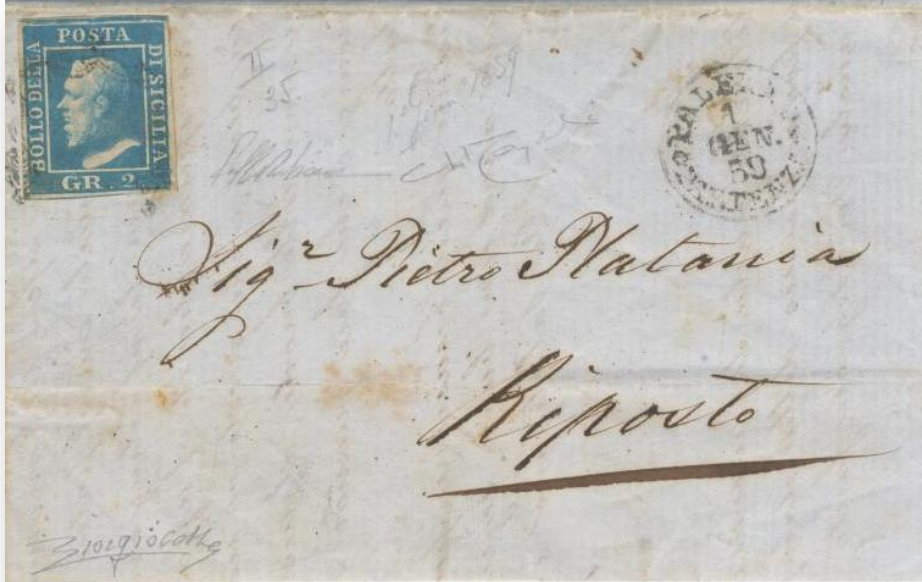 POSTA
BOLLO DELLA
DI SICILIA
GR. 2
II
35
1859
PALERMO
1
GEN.
59
PARTENZA
Sig.r Pietro Platania
Riposto
Giorgio Colla